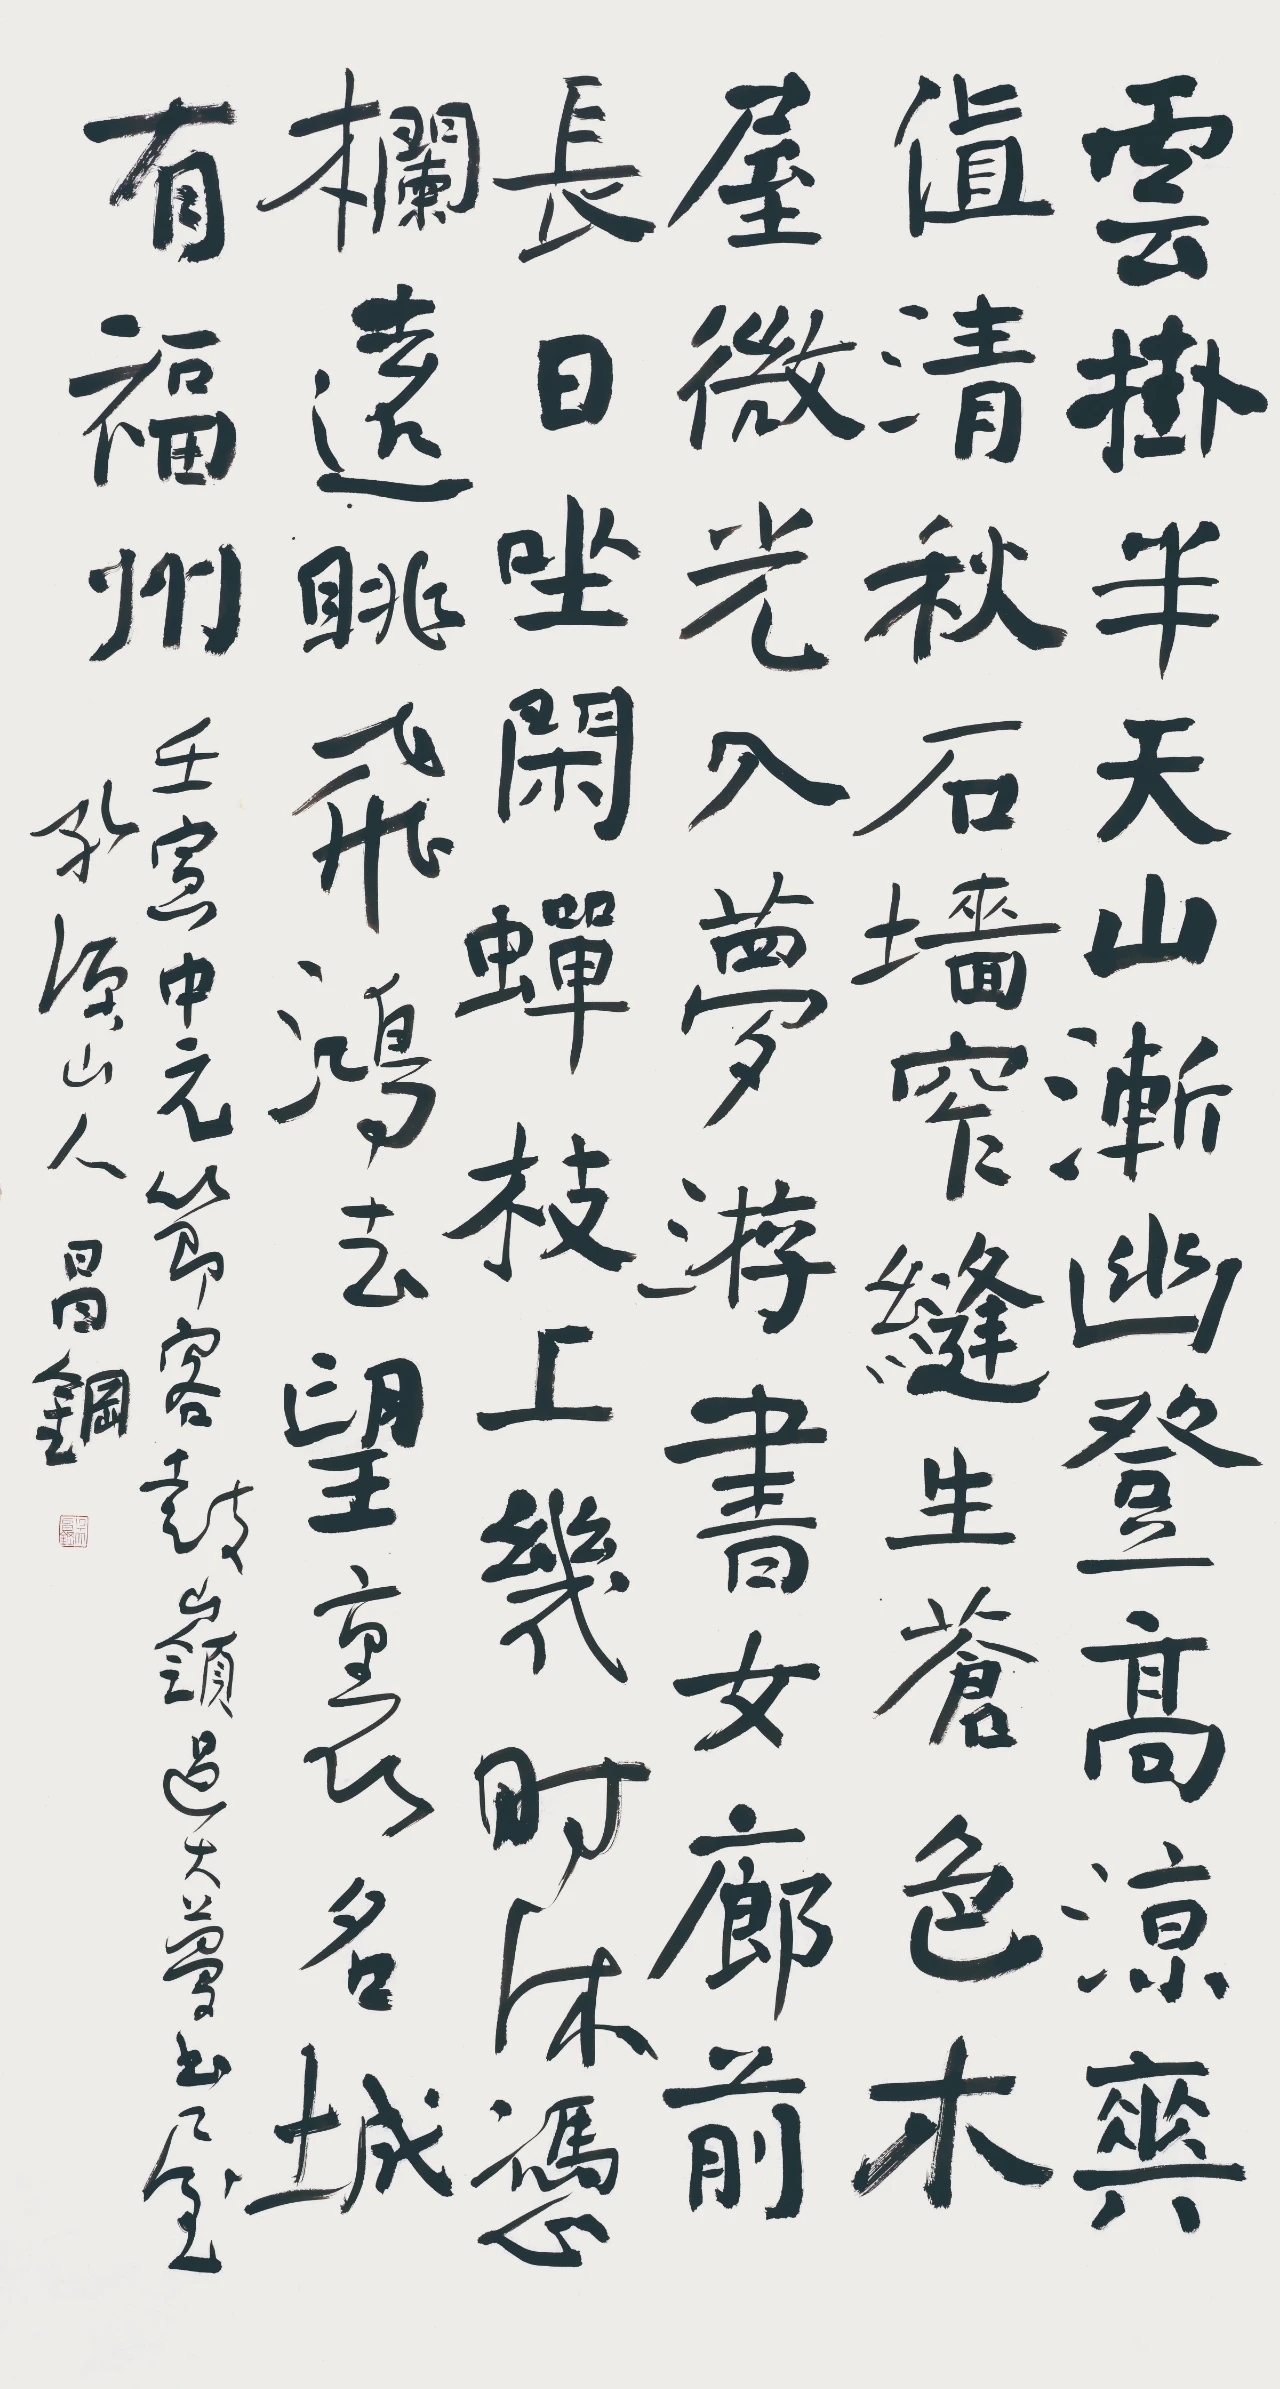 雲掛半天山漸幽登高涼爽
值清秋石墻窄縫生蒼色木
屋微光入夢游書女廊前
長日坐閑蟬枝上幾時休憑
欄遠眺飛鴻去望裏名城
有福州
壬寅中元節客鼓嶺過大夢書屋
源山人 昌鋼